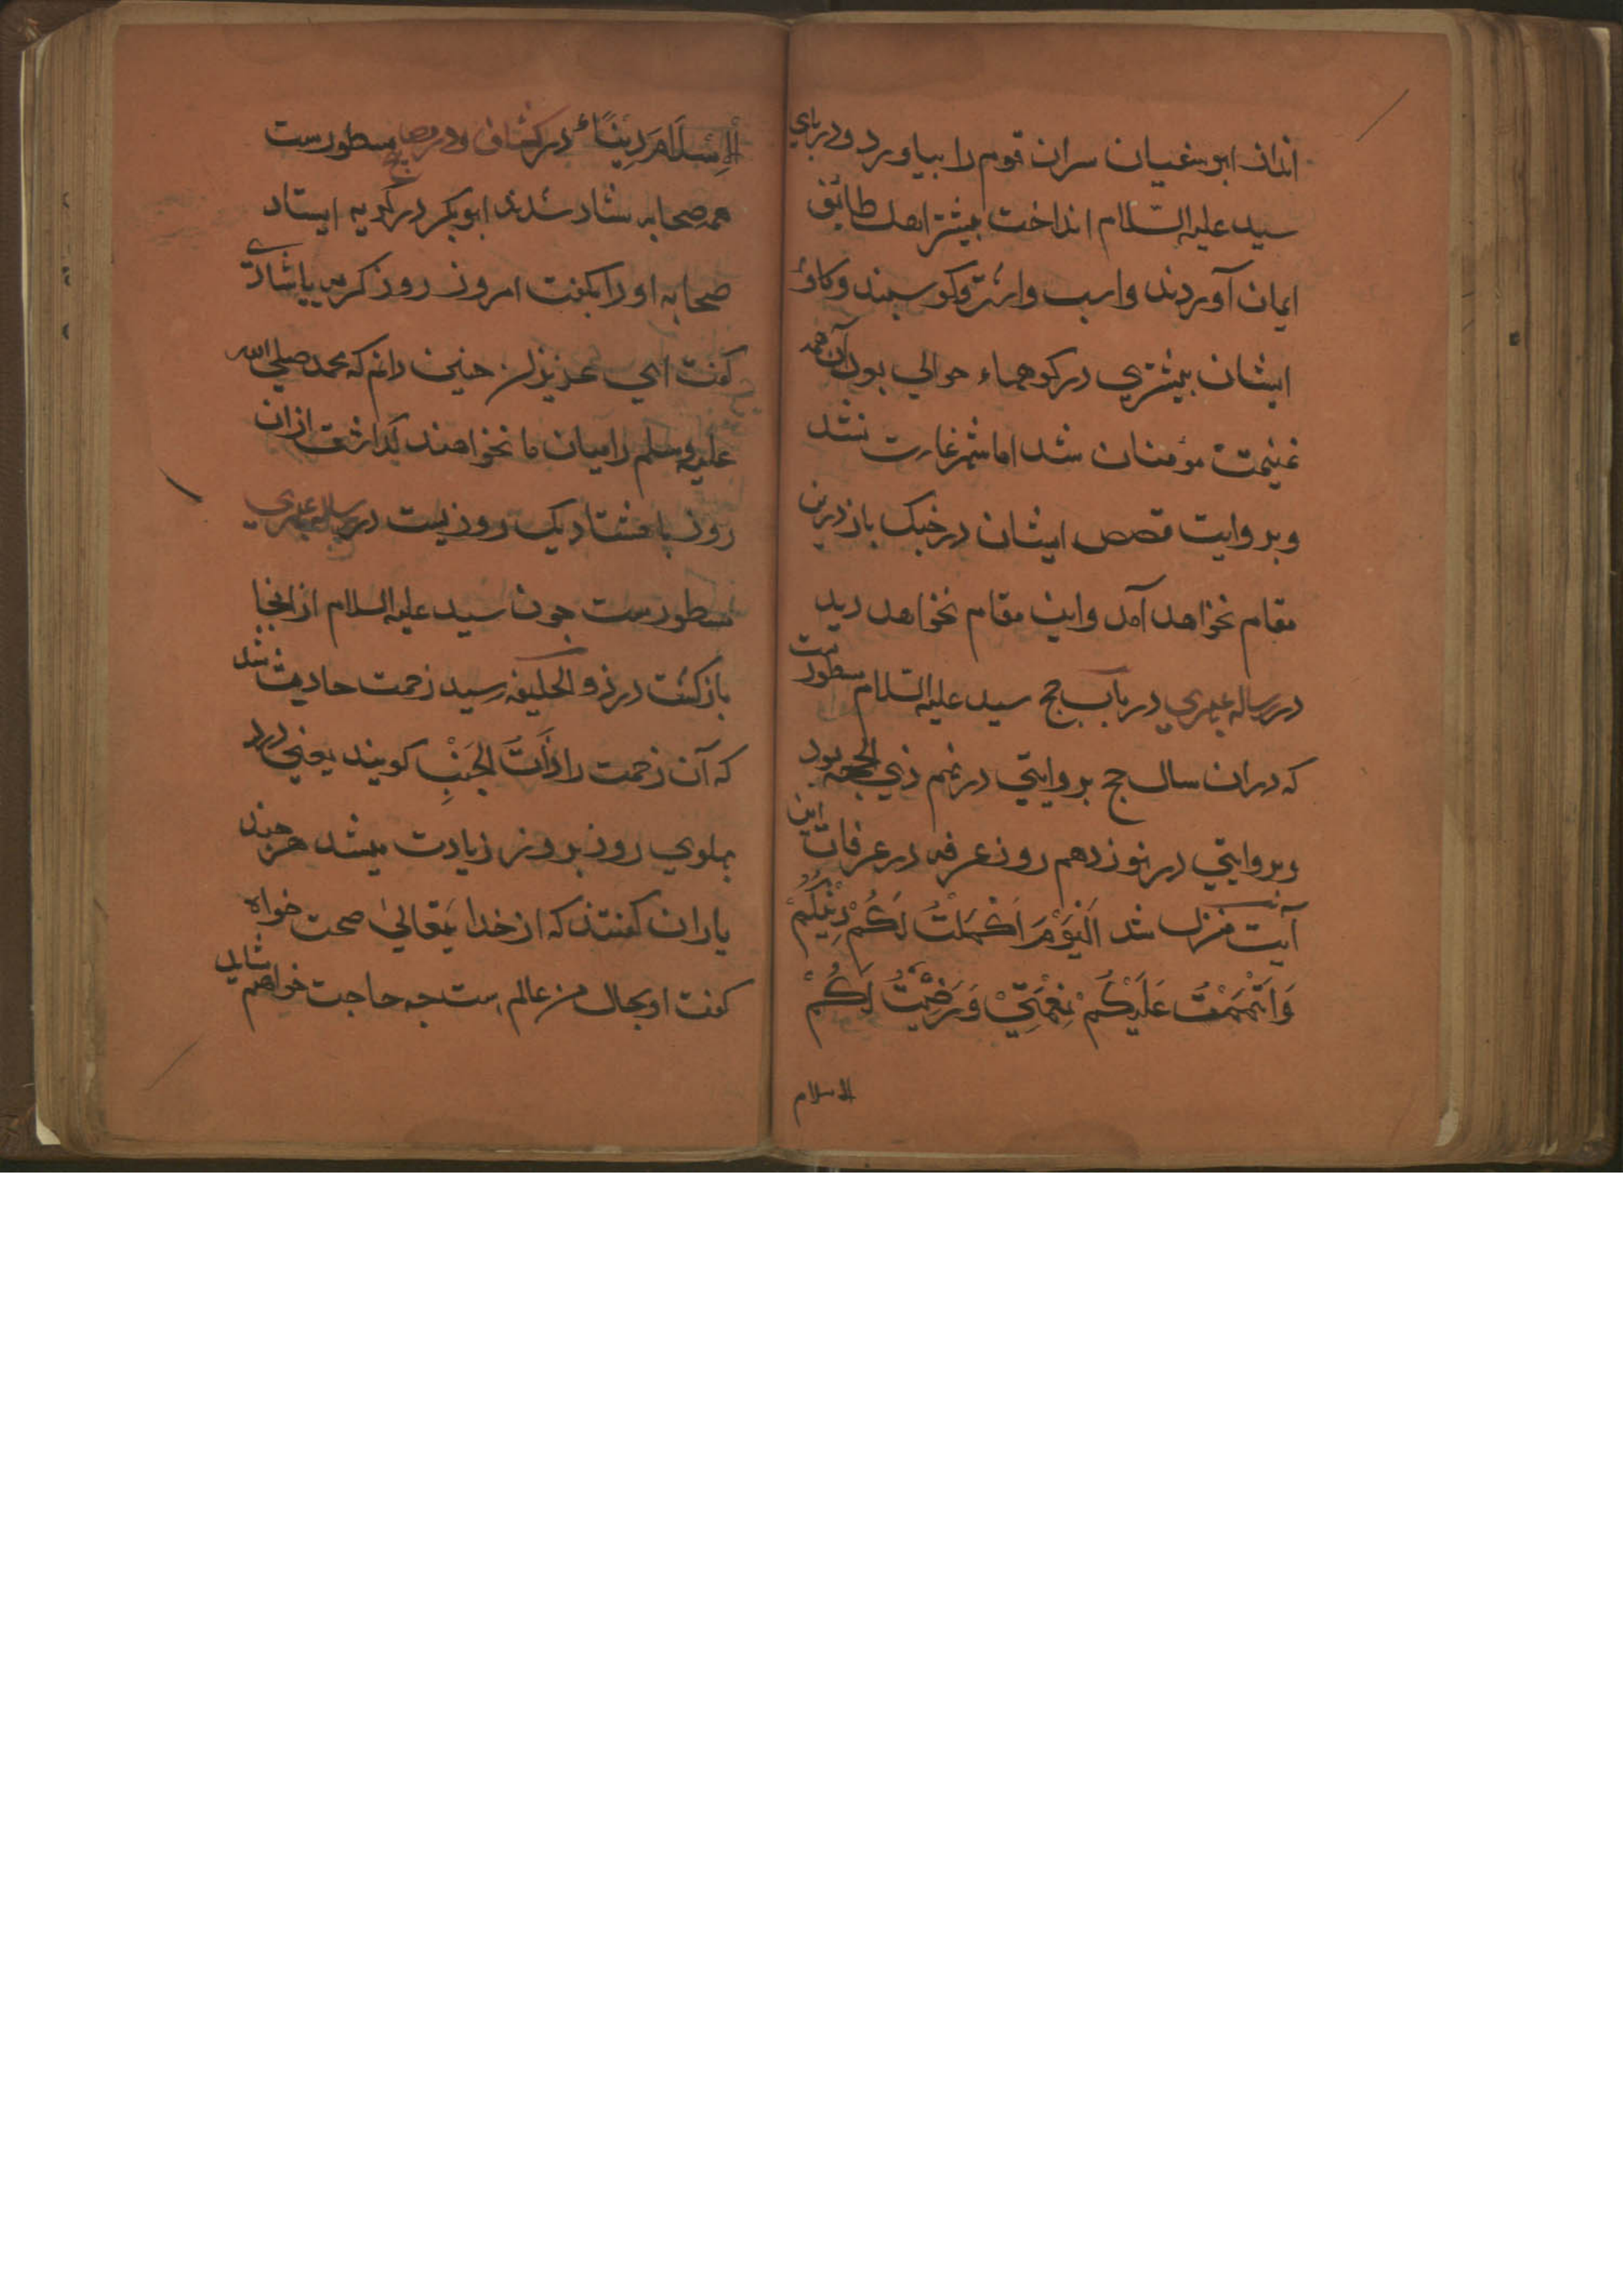 ازان ابوسفیان سران قوم را بیاورد ودرپای
سید علیه السلام انداخت بیشتر اهل طائف
ایمان آوردند واسب واشتر وکوسپند وکاو
ایشان بیشتری در کوهها حوالی بود آن همه
غنیمت مؤمنان شد اما شهر غارت نشد
وبروایت قصص ایشان در جنک باز درین
مقام نخواهد آمد واین مقام نخواهد دید
در رساله عبری در باب حج سید علیه السلام مسطورست
که دران سال حج بروایتی در نهم ذی الحجه بود
وبروایتی در نوزدهم روز عرفه در عرفات این
آیت منزل شد اَلْیَوْمَ اَکْمَلْتُ لَکُمْ دِیْنَکُمْ
وَاَتْمَمْتُ عَلَیْکُمْ نِعْمَتِیْ وَرَضِیْتُ لَکُمْ
الاسلام
الْاِسْلَامَ دِیْنًا در کشاف ودر مصابیح مسطورست
همه صحابه شاد شدند ابوبکر در کریه ایستاد
صحابه او را بکفت امروز روز کریه یا شادی
کفت ای عزیزان چنین دانم که محمد صلی الله
علیه وسلم را میان ما نخواهند کذاشت ازان
روز تا هشتاد یک روز زیست در رساله عبری
مسطورست چون سید علیه السلام از انجا
بازکشت در ذو الحلیفه رسید زحمت حادث شد
که آن زحمت را ذَاتَ الْجَنْبِ کویند یعنی درد
پهلوی روز بروز زیادت میشد هر چند
یاران کفتند که از خدایتعالی صحت خواه
کفت او بحال من عالم است چه حاجت خواهم شاید